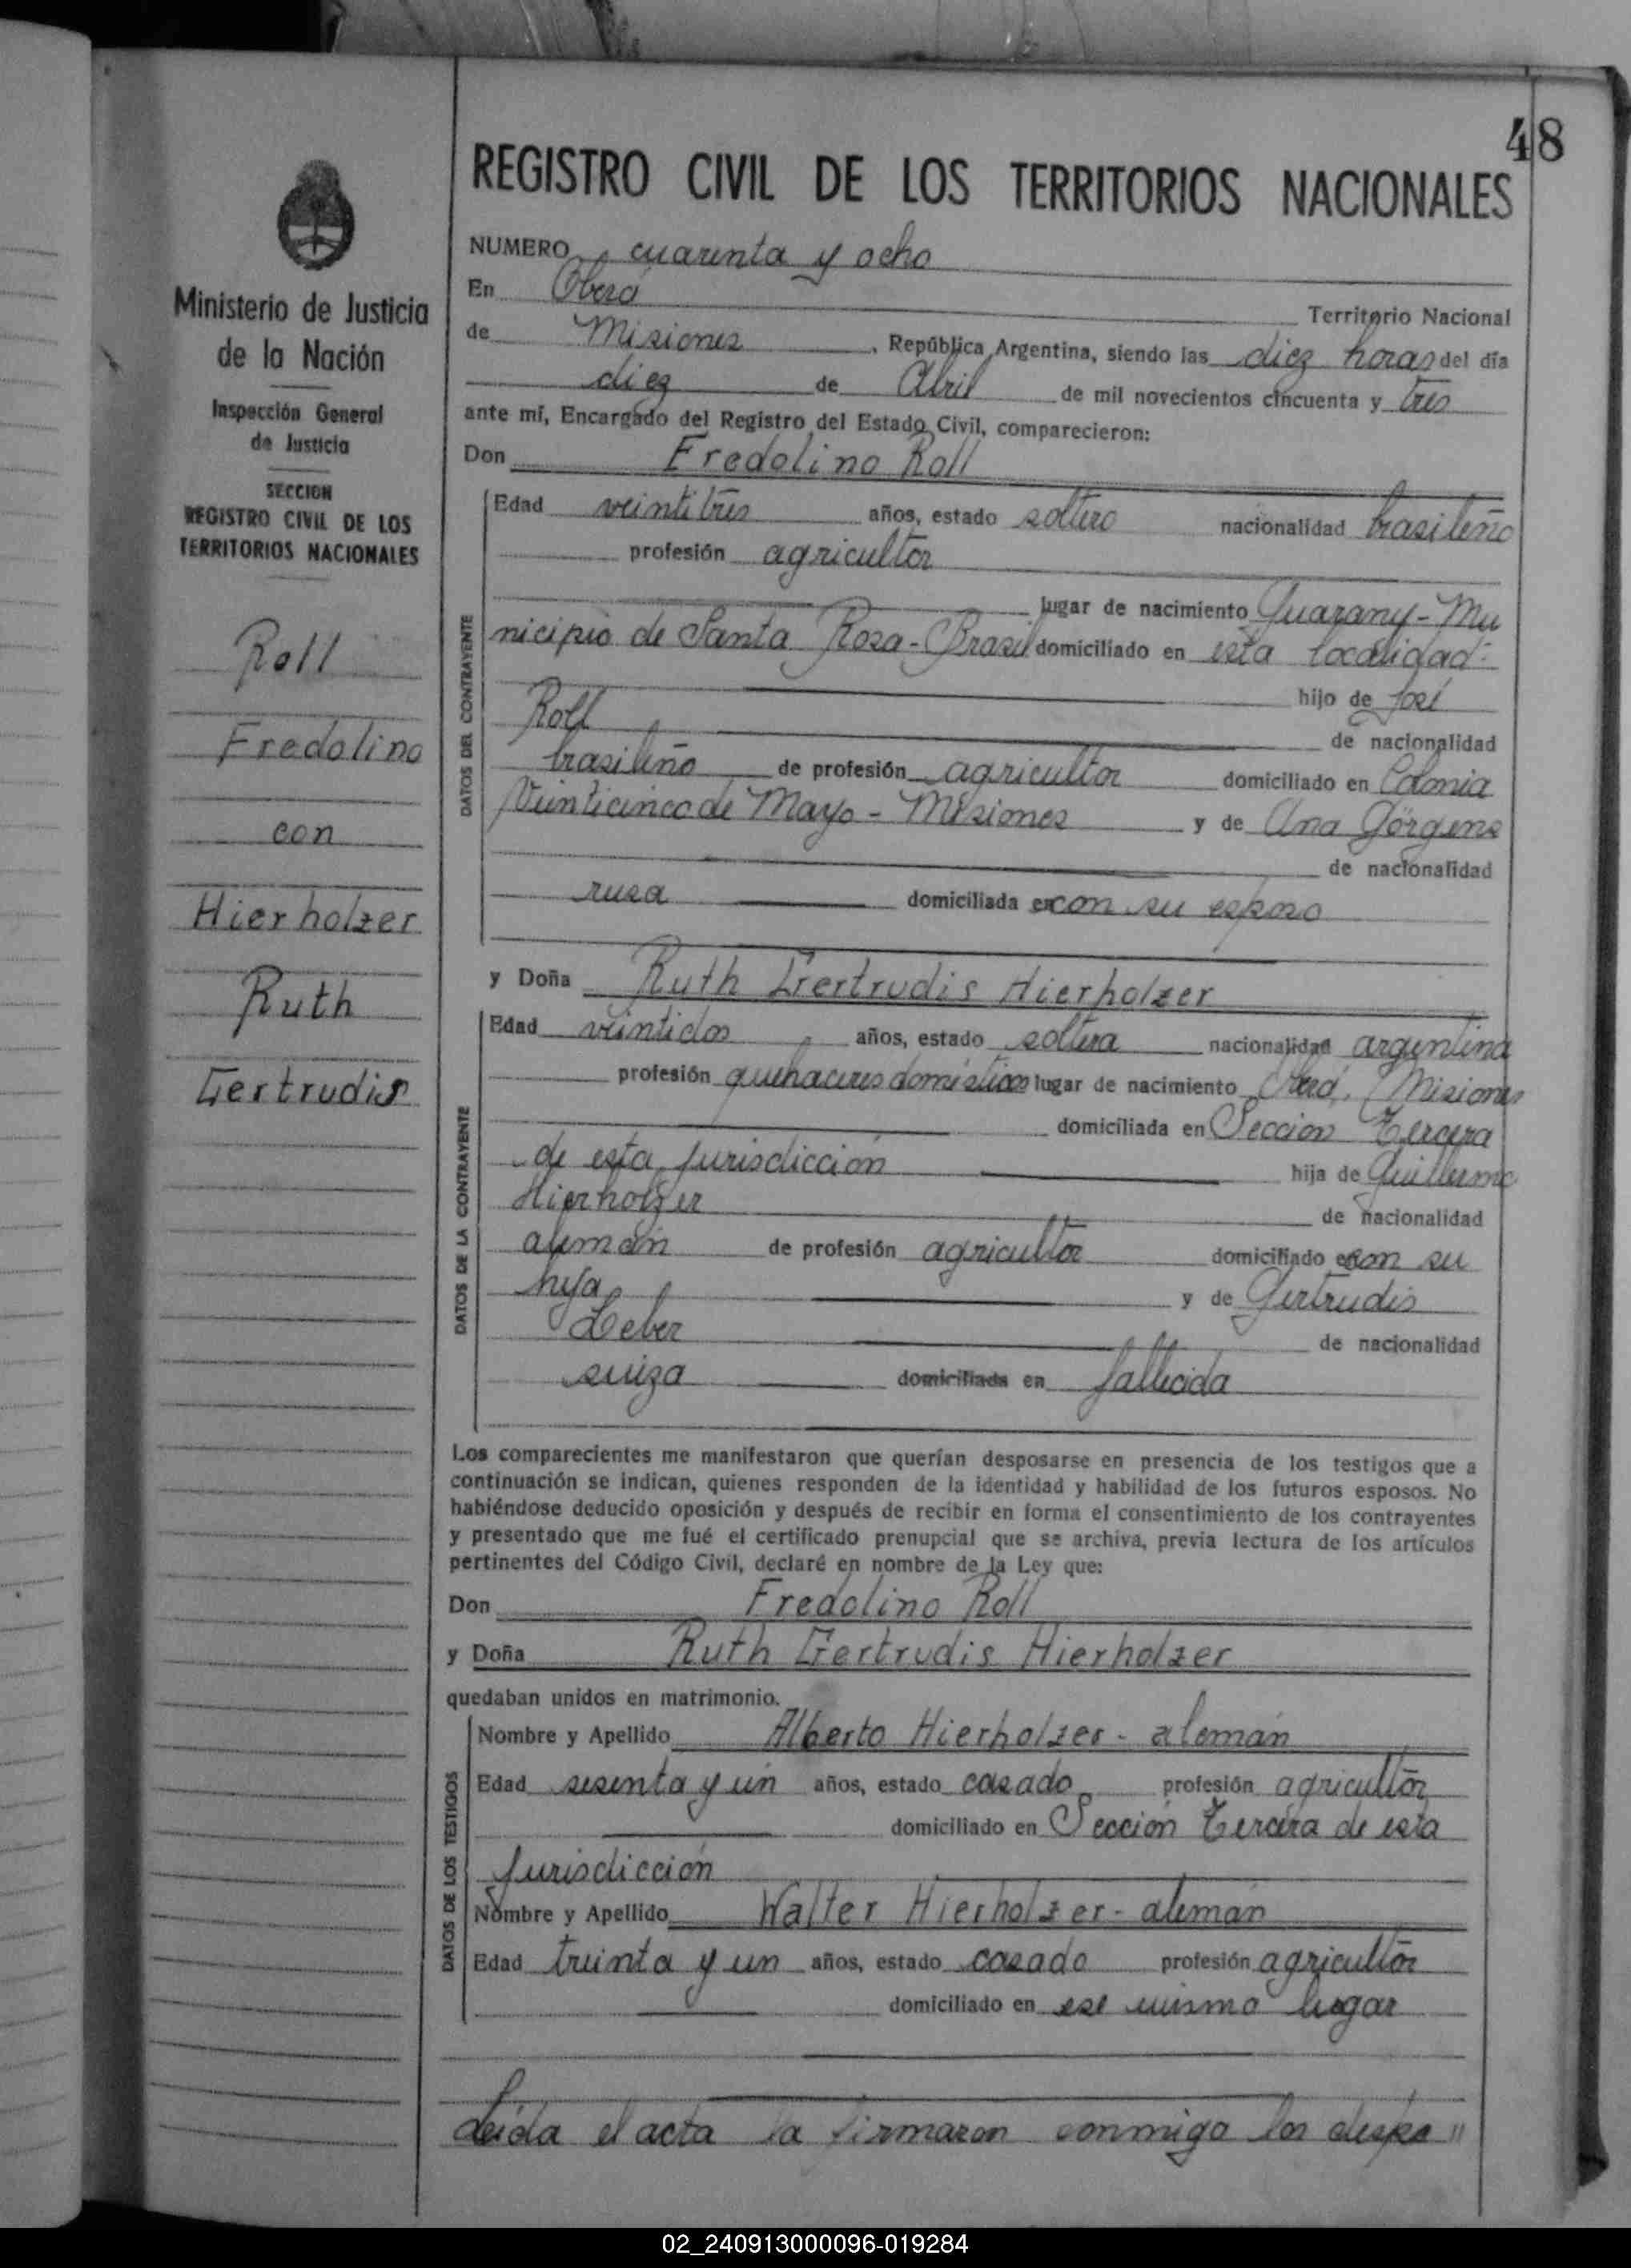 48
REGISTRO CIVIL DE LOS TERRITORIOS NACIONALES
Ministerio de Justicia
de la Nación
Inspección General
de Justicia
SECCION
REGISTRO CIVIL DE LOS
TERRITORIOS NACIONALES
Roll
Fredolino
con
Hierholzer
Ruth
Gertrudis
NUMERO cuarenta y ocho
En Oberá Territorio Nacional
de Misiones, República Argentina, siendo las diez horas del día
diez de Abril de mil novecientos cincuenta y tres
ante mí, Encargado del Registro del Estado Civil, comparecieron:
Don Fredolino Roll
DATOS DEL CONTRAYENTE
Edad veintitres años, estado soltero nacionalidad brasileño
profesión agricultor
lugar de nacimiento Guarany-Mu
nicipio de Santa Rosa-Brasil domiciliado en esta localidad-
hijo de José
Roll de nacionalidad
brasileño de profesión agricultor domiciliado en Colonia
Veinticinco de Mayo - Misiones y de Ana Görgens
de nacionalidad
rusa domiciliada en con su esposo
y Doña Ruth Gertrudis Hierholzer
DATOS DE LA CONTRAYENTE
Edad veintidos años, estado soltera nacionalidad argentina
profesión quehaceres domésticos lugar de nacimiento Oberá, Misiones
domiciliada en Sección Tercera
de esta Jurisdicción hija de Guillermo
Hierholzer de nacionalidad
alemán de profesión agricultor domiciliado en con su
hija y de Gertrudis
Leber de nacionalidad
suiza domiciliada en fallecida
Los comparecientes me manifestaron que querían desposarse en presencia de los testigos que a
continuación se indican, quienes responden de la identidad y habilidad de los futuros esposos. No
habiéndose deducido oposición y después de recibir en forma el consentimiento de los contrayentes
y presentado que me fué el certificado prenupcial que se archiva, previa lectura de los artículos
pertinentes del Código Civil, declaré en nombre de la Ley que:
Don Fredolino Roll
y Doña Ruth Gertrudis Hierholzer
quedaban unidos en matrimonio.
DATOS DE LOS TESTIGOS
Nombre y Apellido Alberto Hierholzer - alemán
Edad sesenta y un años, estado casado profesión agricultor
domiciliado en Sección Tercera de esta
Jurisdicción
Nombre y Apellido Walter Hierholzer - alemán
Edad treinta y un años, estado casado profesión agricultor
domiciliado en ese mismo lugar
Leída el acta la firmaron conmigo los despo "
02_240913000096-019284